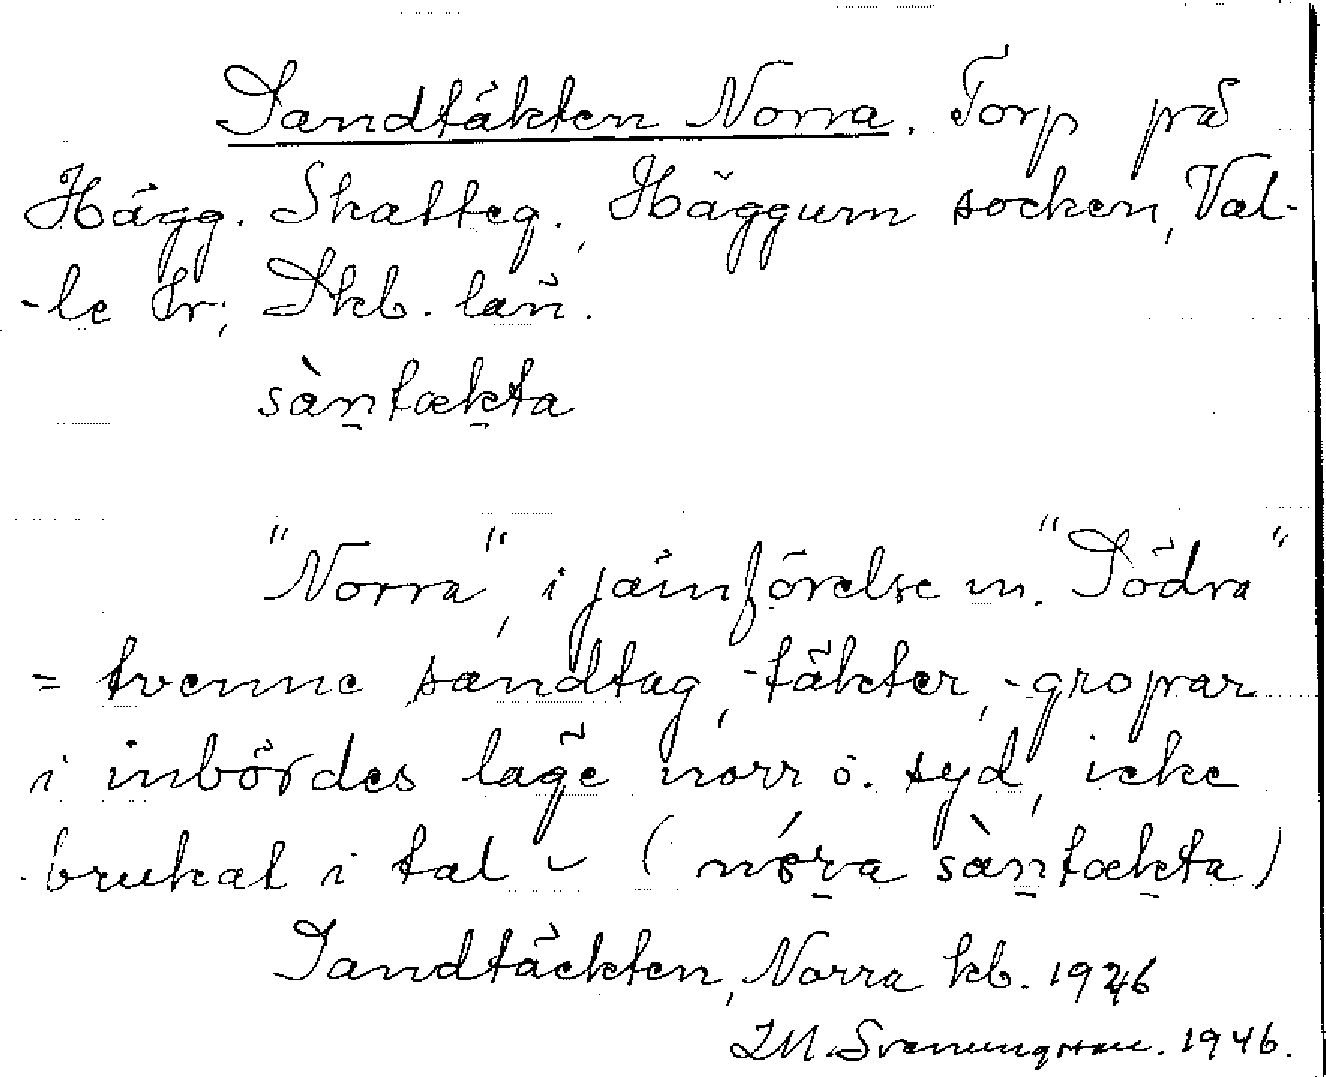 Sandtäkten Norra. Torp på
Hägg. Skatteg., Häggum socken, Val-
-le hr; Skb. län.
sàn̲tæk̲ta
"Norra", i jämförelse m. "Södra"
= tvenne sandtag, -täkter, -gropar
i inbördes läge norr o. syd, icke
brukat i tal – (nór̲a sàn̲tæk̲ta)
Sandtäckten, Norra kb. 1926
I.M. Svenungsson. 1946.